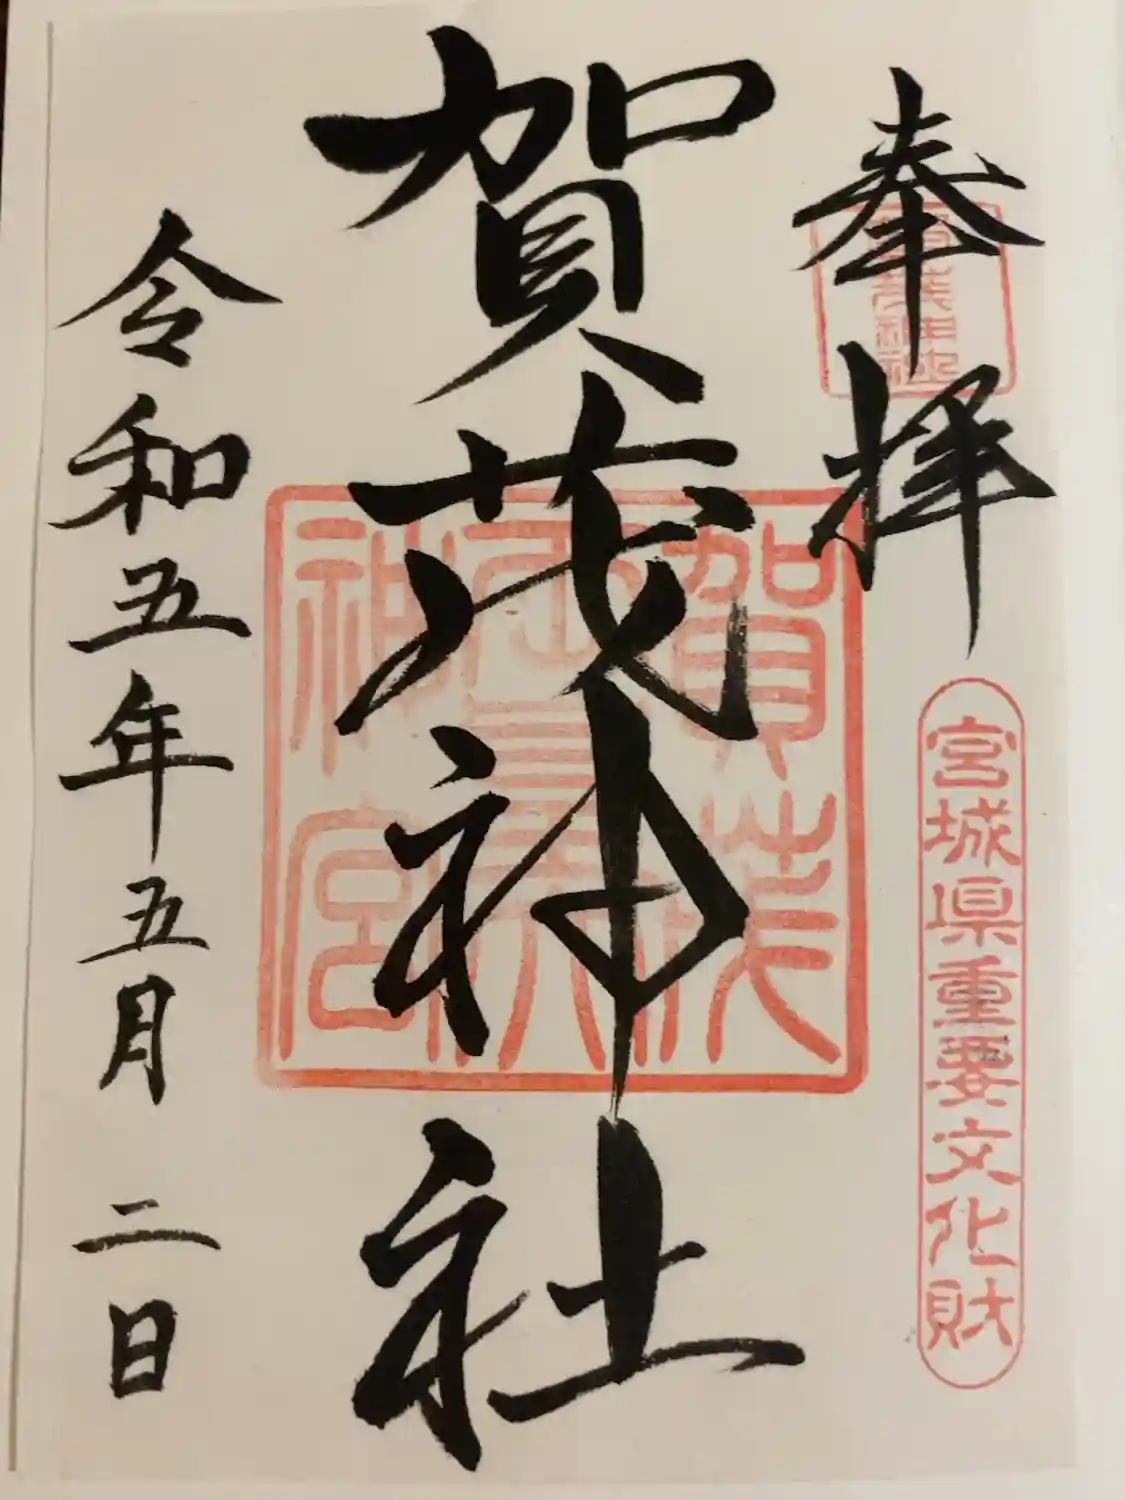 奉拝
宮城県重要文化財
賀茂神社
賀茂
神宮
令和五年五月二日